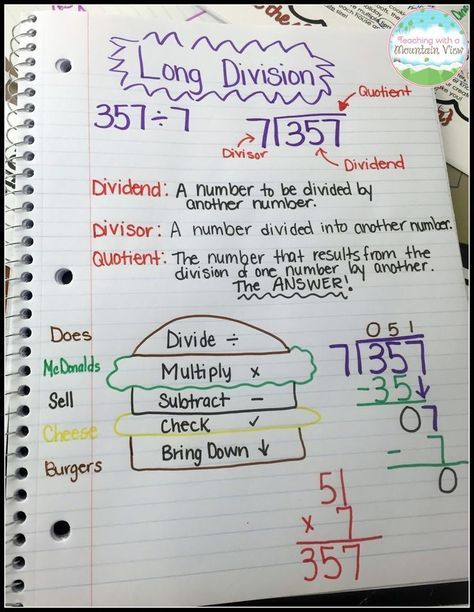 Teaching with a
Mountain View
Long Division
357÷7
Quotient
7)357
Divisor
Dividend
Dividend: A number to be divided by
another number.
Divisor: A number divided into another number.
Quotient: The number that results from the
division of one number by another.
The ANSWER!
Does
Divide ÷
McDonalds
Multiply x
Sell
Subtract −
Cheese
Check ✓
Burgers
Bring Down ↓
051
7)357
−35↓
07
− 7
0
51
x 7
357